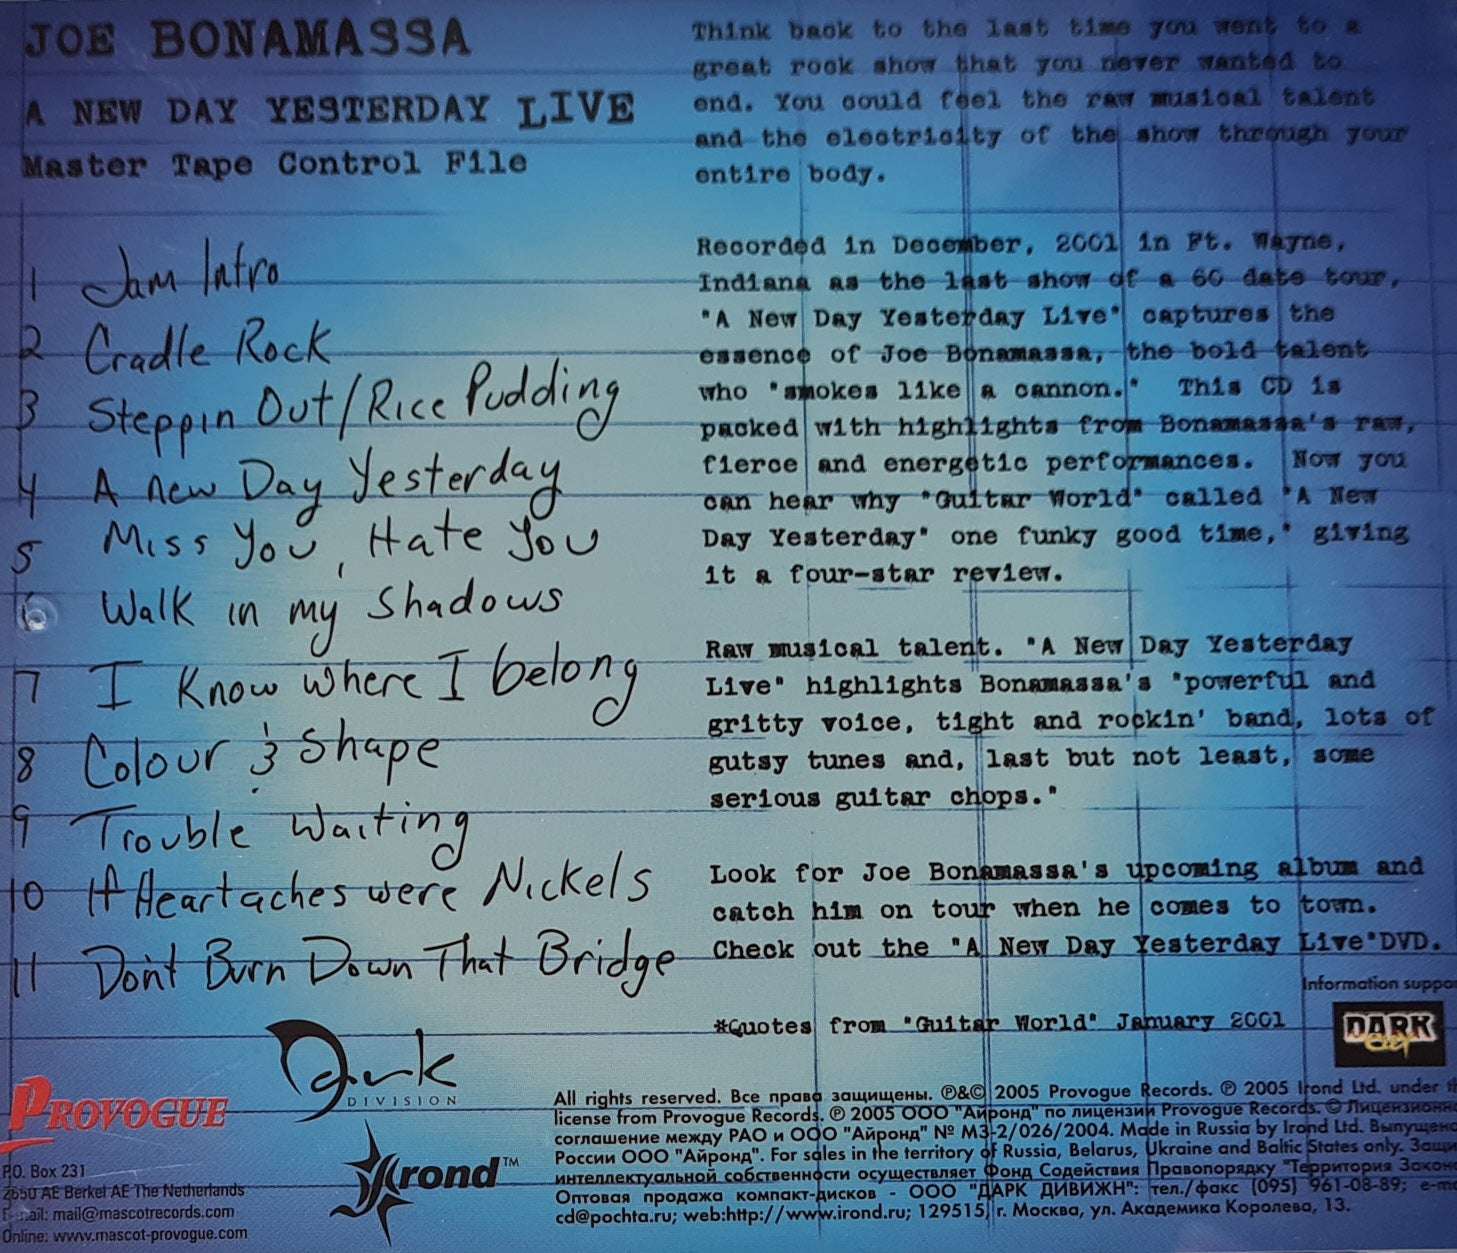 JOE BONAMASSA
A NEW DAY YESTERDAY LIVE
Master Tape Control File
1 Jam Intro
2 Cradle Rock
3 Steppin Out/Rice Pudding
4 A new Day Yesterday
5 Miss You, Hate You
6 Walk in my Shadows
7 I Know where I belong
8 Colour & Shape
9 Trouble Waiting
10 If Heartaches were Nickels
11 Don't Burn Down That Bridge
Think back to the last time you went to a
great rock show that you never wanted to
end. You could feel the raw musical talent
and the electricity of the show through your
entire body.
Recorded in December, 2001 in Ft. Wayne,
Indiana as the last show of a 60 date tour,
"A New Day Yesterday Live" captures the
essence of Joe Bonamassa, the bold talent
who "smokes like a cannon." This CD is
packed with highlights from Bonamassa's raw,
fierce and energetic performances. Now you
can hear why "Guitar World" called "A New
Day Yesterday" one funky good time," giving
it a four-star review.
Raw musical talent. "A New Day Yesterday
Live" highlights Bonamassa's "powerful and
gritty voice, tight and rockin' band, lots of
gutsy tunes and, last but not least, some
serious guitar chops."
Look for Joe Bonamassa's upcoming album and
catch him on tour when he comes to town.
Check out the "A New Day Yesterday Live"DVD.
*Quotes from "Guitar World" January 2001
Information suppo
DARK
City
Dark
DIVISION
PROVOGUE
P.O. Box 231
2650 AE Berkel AE The Netherlands
E-mail: mail@mascotrecords.com
Online: www.mascot-provogue.com
Irond™
All rights reserved. Все права защищены. ℗&© 2005 Provogue Records. ℗ 2005 Irond Ltd. under th
license from Provogue Records. ℗ 2005 ООО "Айронд" по лицензии Provogue Records. © Лицензионно
соглашение между РАО и ООО "Айронд" № МЗ-2/026/2004. Made in Russia by Irond Ltd. Выпущено
России ООО "Айронд". For sales in the territory of Russia, Belarus, Ukraine and Baltic States only. Защи
интеллектуальной собственности осуществляет Фонд Содействия Правопорядку "Территория Закон
Оптовая продажа компакт-дисков - ООО "ДАРК ДИВИЖН": тел./факс (095) 961-08-89; e-ma
cd@pochta.ru; web:http://www.irond.ru; 129515, г. Москва, ул. Академика Королева, 13.